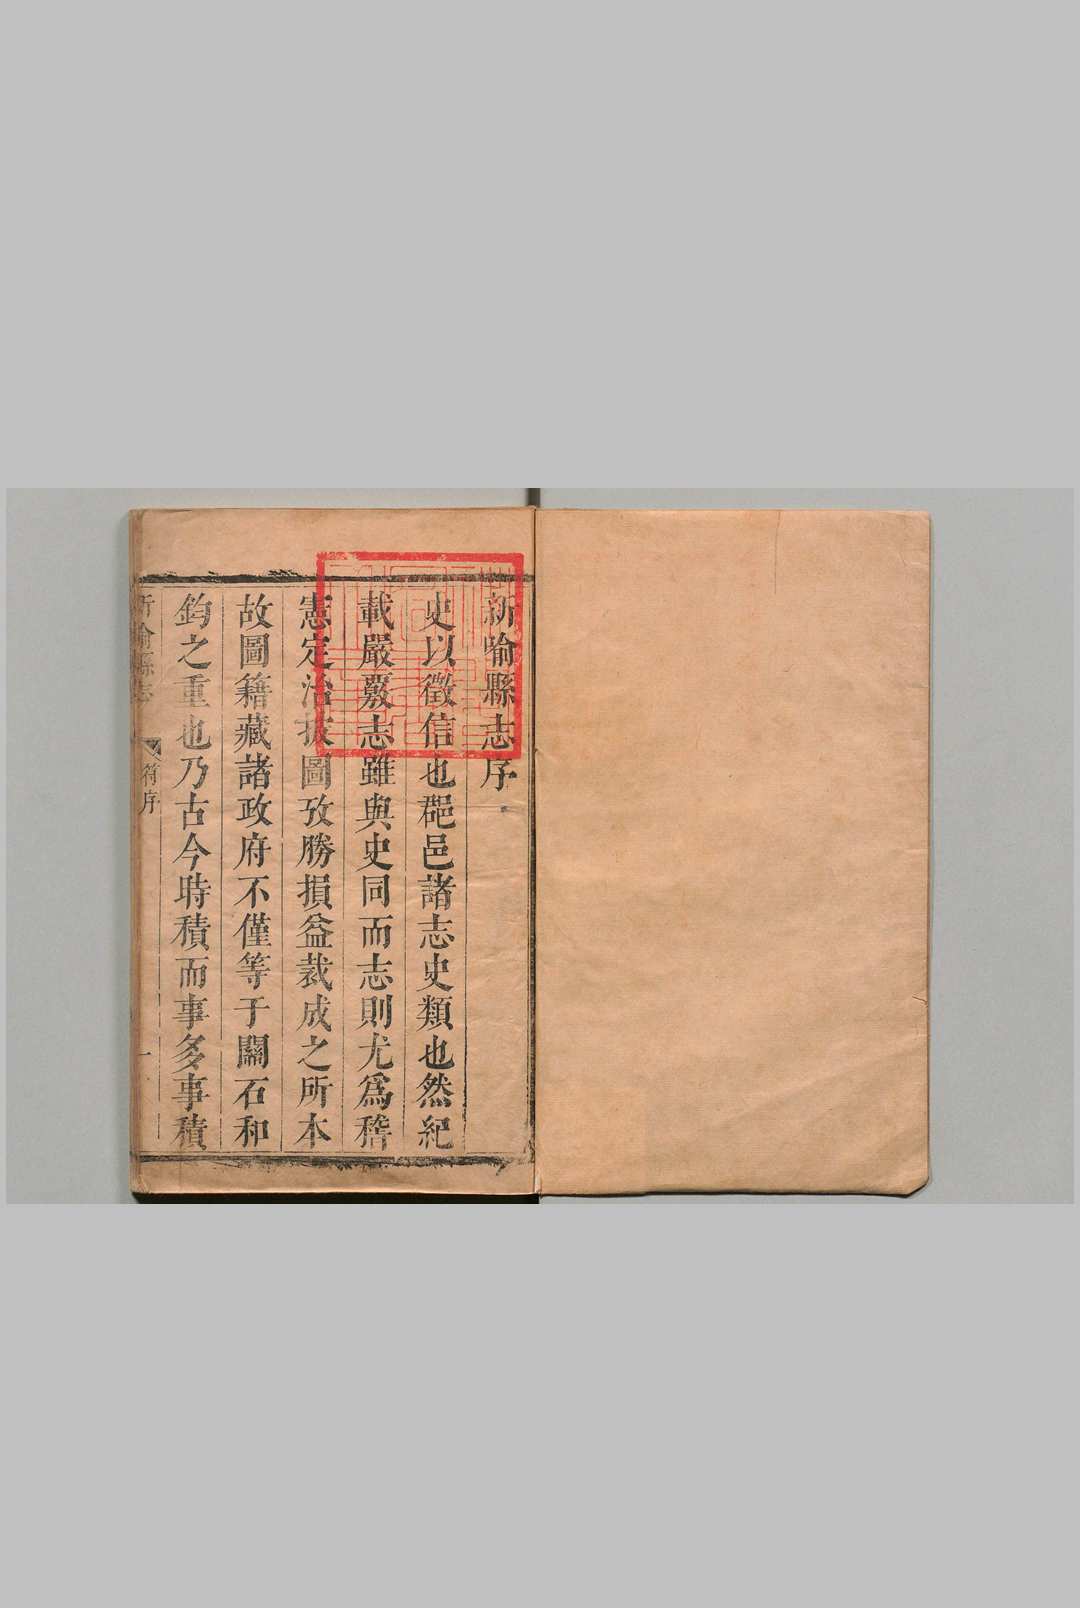 新喻縣志序
史以徵信也郡邑諸志史類也然紀
載嚴覈志雖與史同而志則尤爲稽
憲定治披圖攷勝損益裁成之所本
故圖籍藏諸政府不僅等于關石和
鈞之重也乃古今時積而事多事積
新喻縣志
符序
一